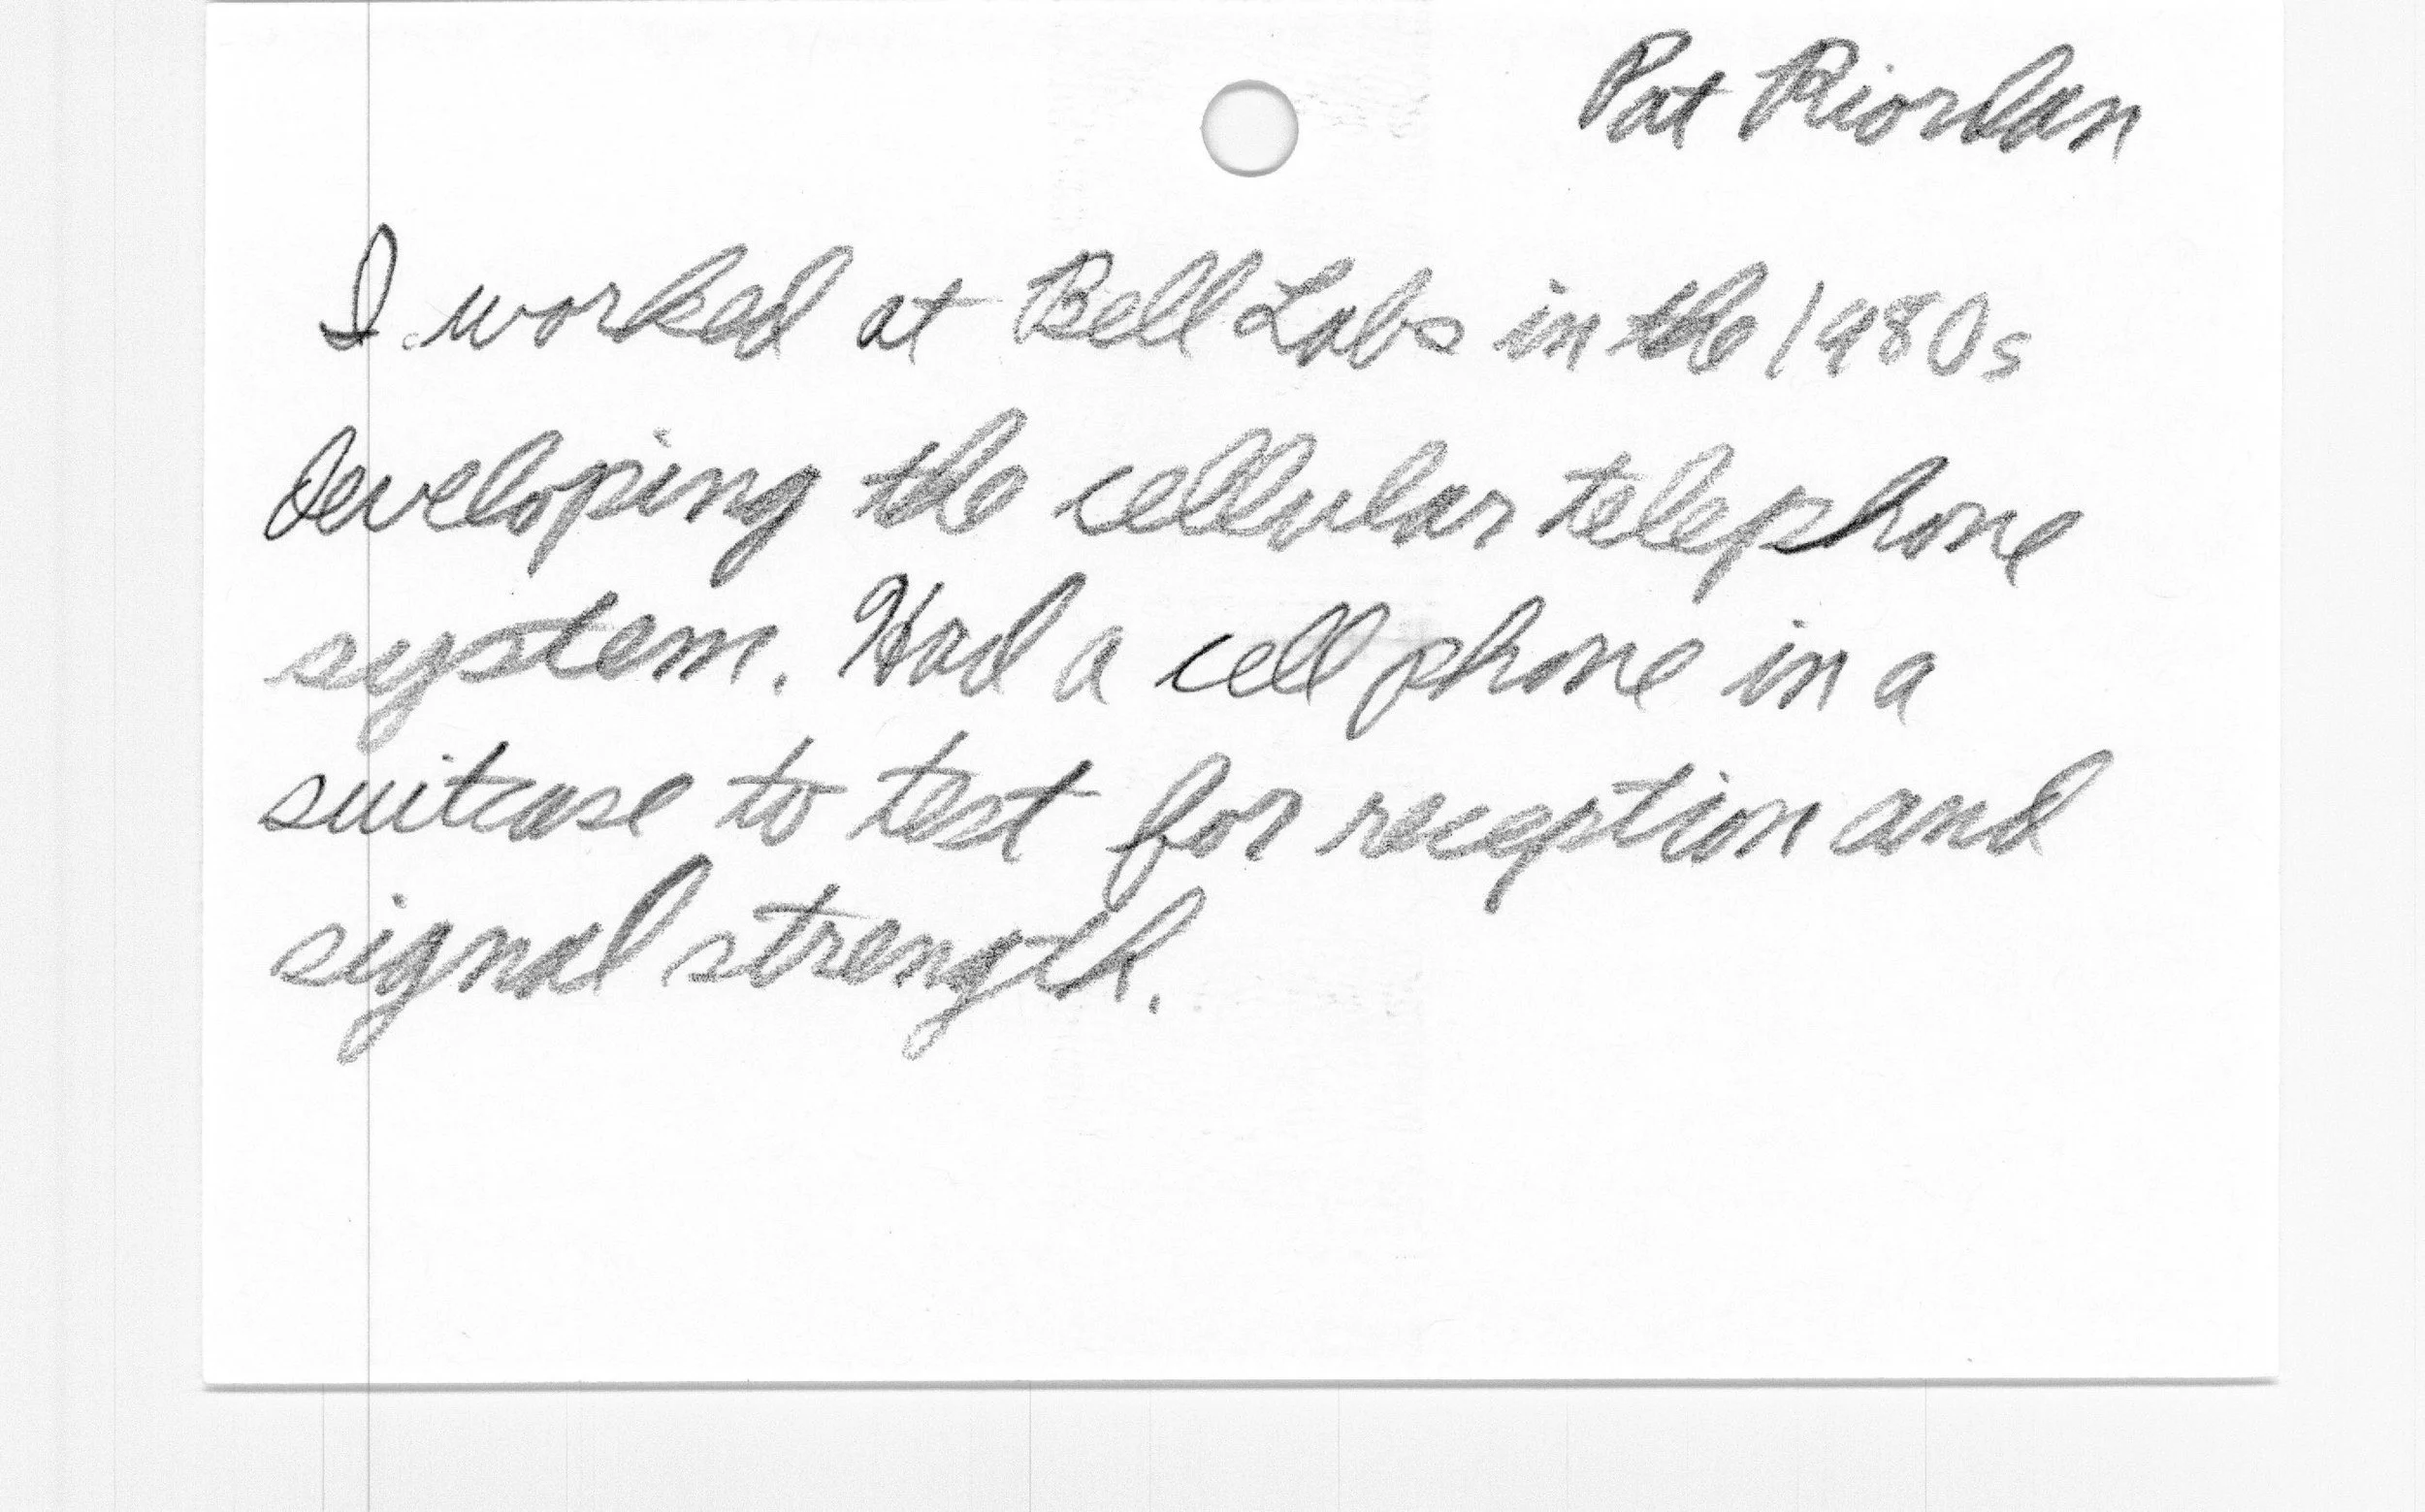 Pat Riordan
I worked at Bell Labs in the 1980s
developing the cellular telephone
system. Had a cell phone in a
suitcase to test for reception and
signal strength.